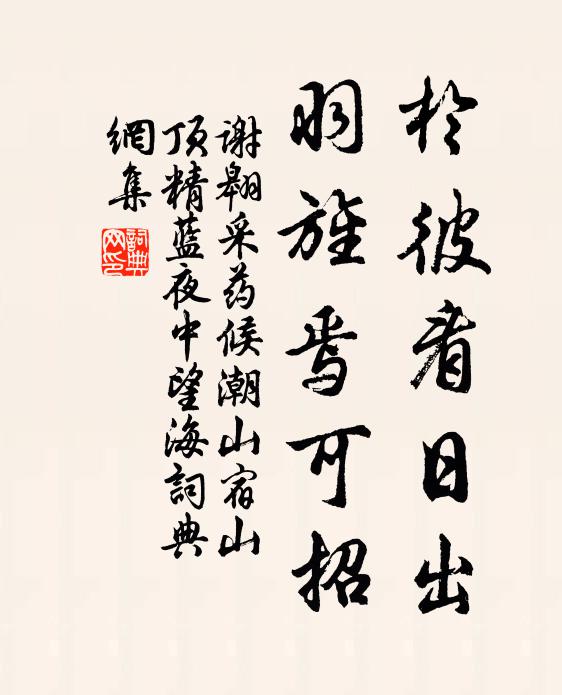 於彼看日出
羽旌焉可招
谢翱采药候潮山宿山
顶精蓝夜中望海詞典
網集
詞典
网印